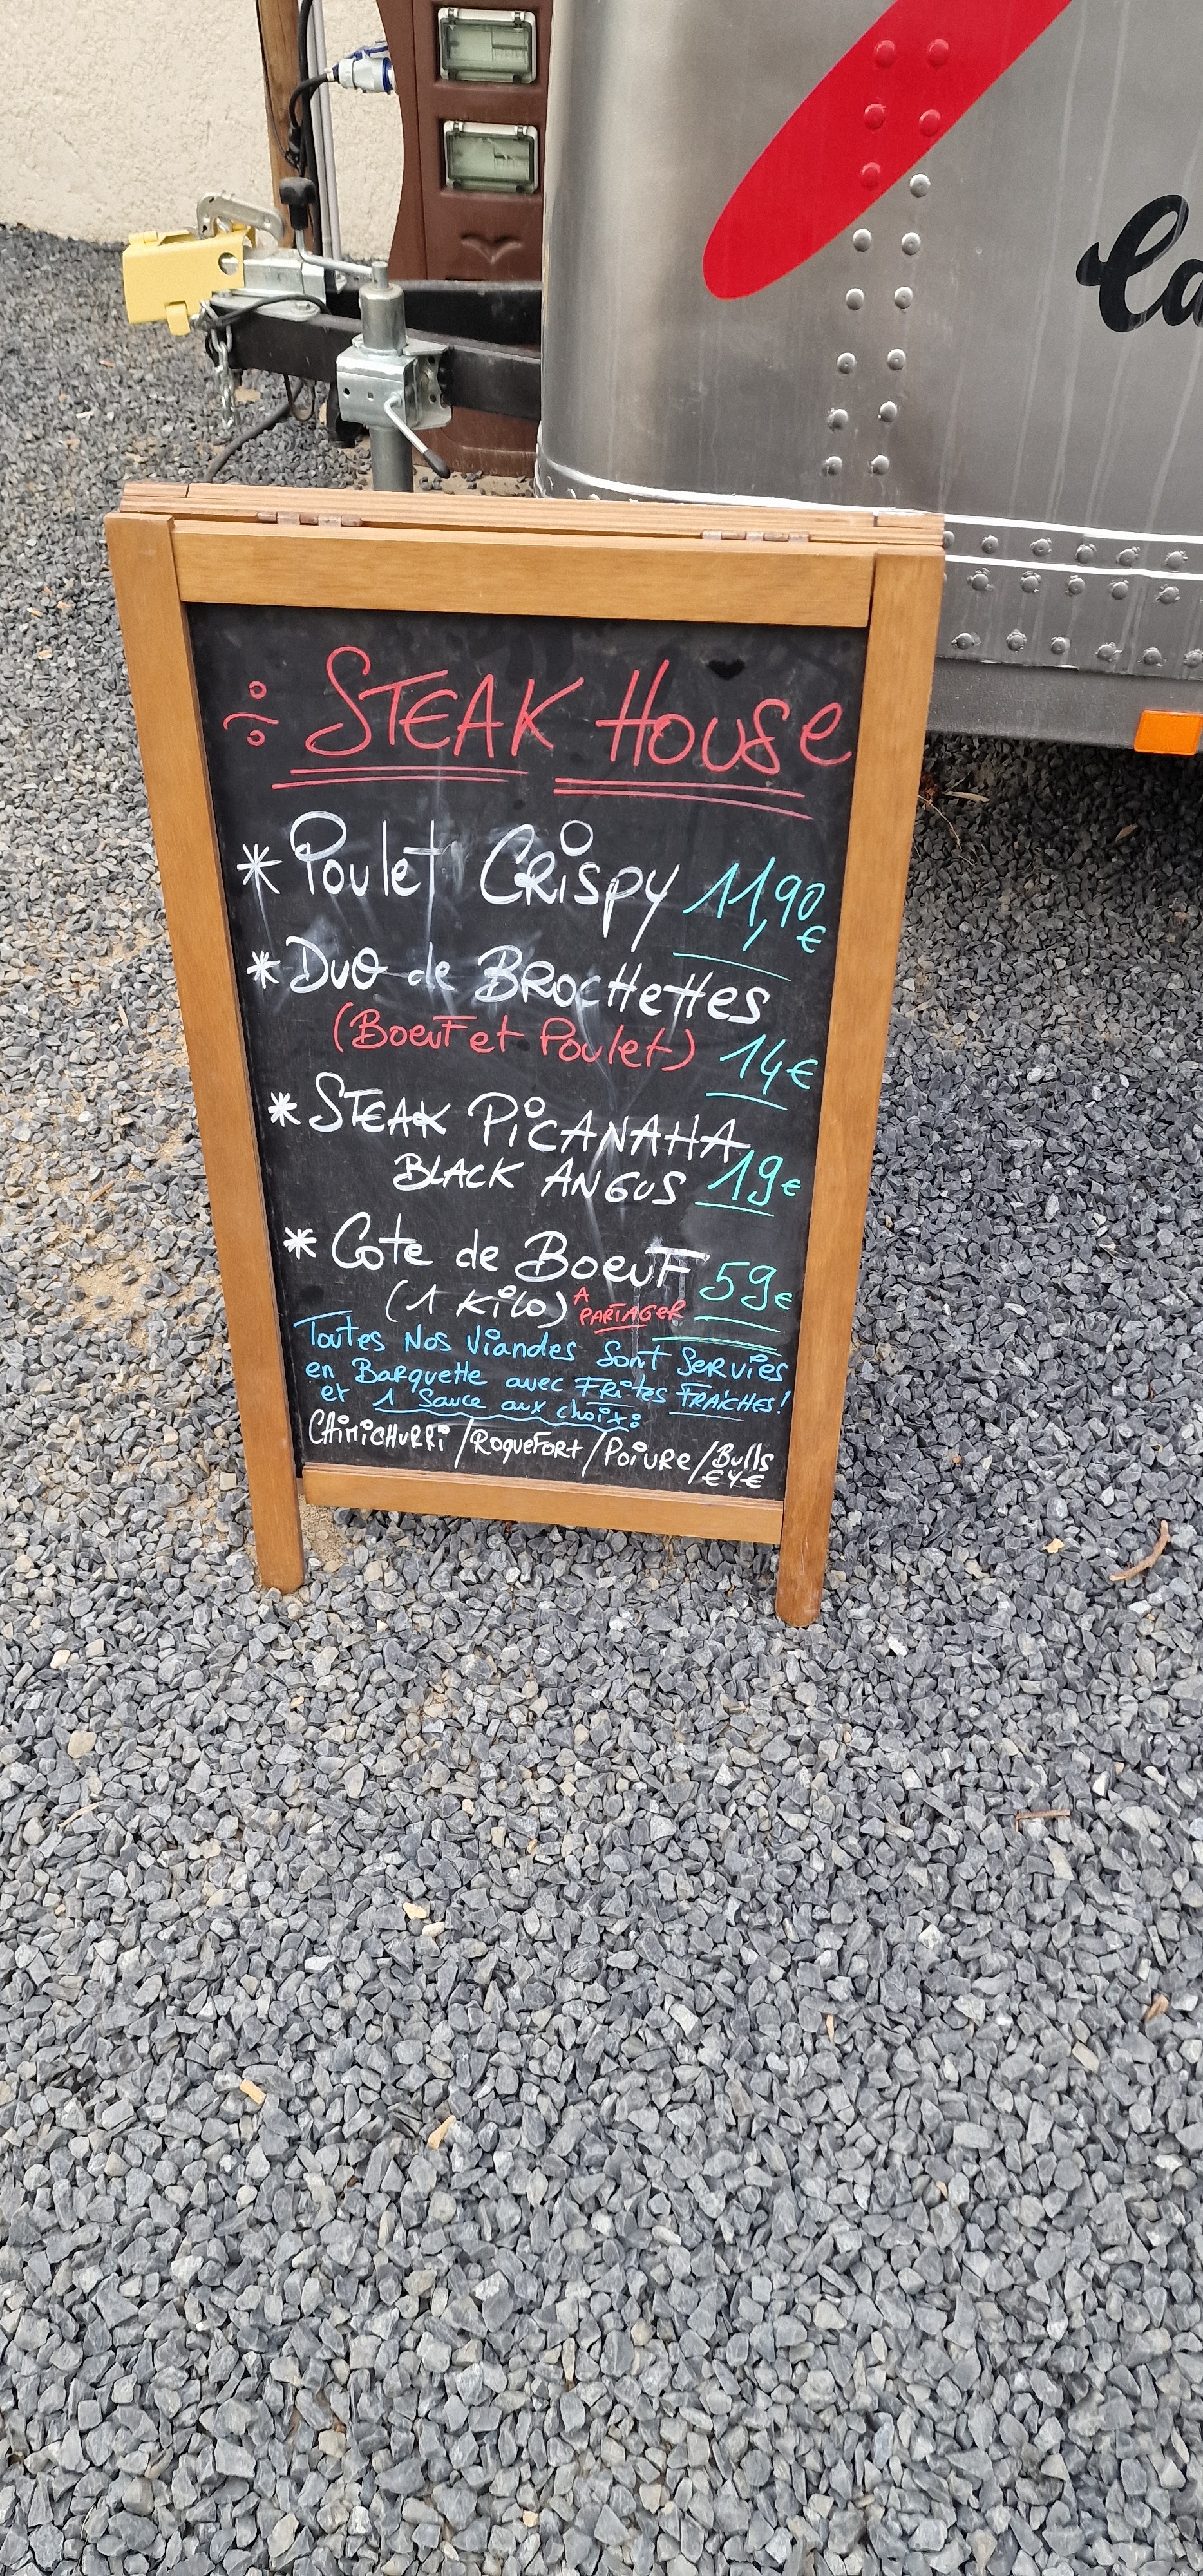 Ca
STEAK House
* Poulet CRispy 11,90 €
* Duo de BRocHettes
(Boeuf et Poulet) 14€
* STEAK PiCANAHA
BLACK ANGUS 19€
* Cote de Boeuf 59€
(1 Kilo) A PARTAGER
Toutes Nos Viandes Sont Servies
en Barquette avec FRites FRAÎCHES!
et 1 Sauce aux choix:
CHiMiCHURRi / RoqueFoRt / PoiVRe / Bulls
€Y€